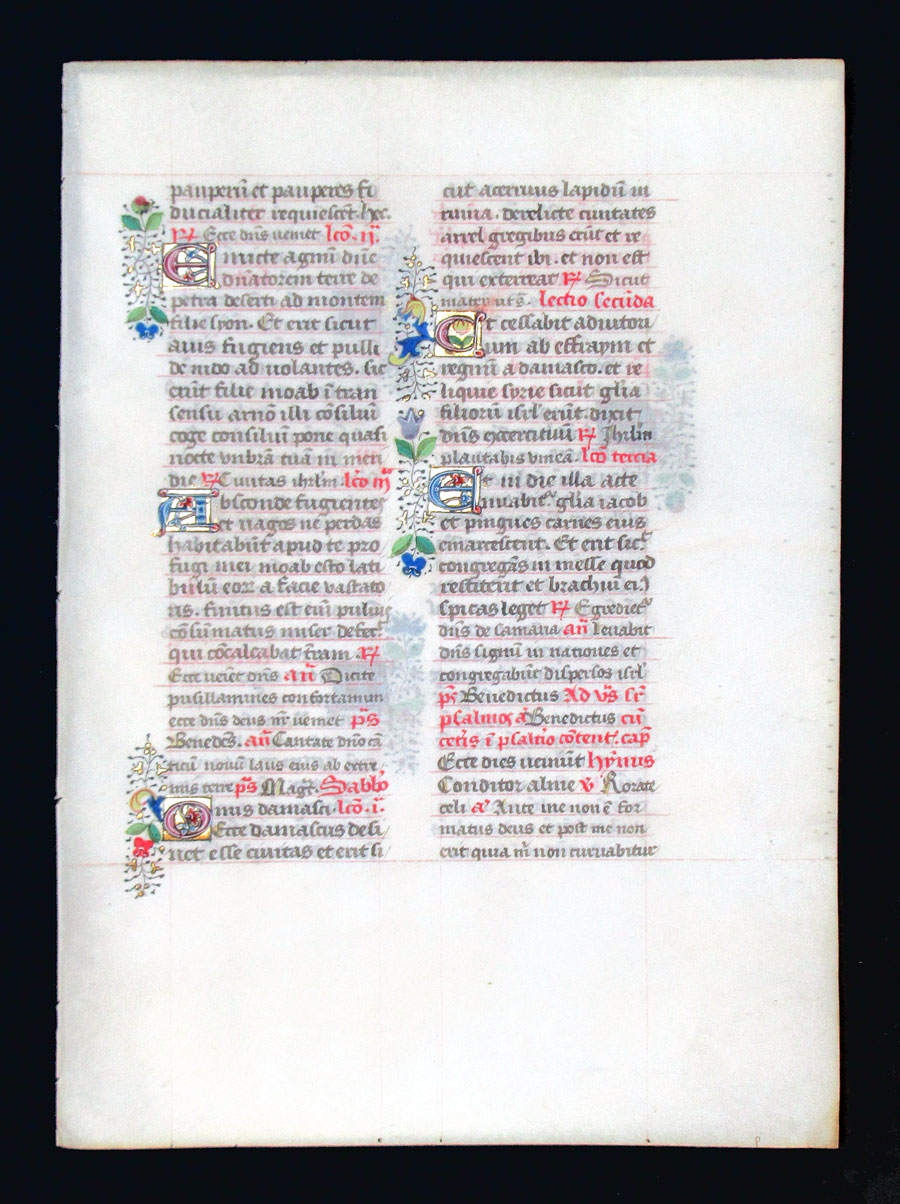 pauperū et pauperes fi
ducialiter requiescēt. hec.
R Ecce dn̄s veniet lcō. ij.
Emitte agnū dn̄e
dominatorem terre de
petra deserti ad montem
filie syon. Et erit sicut
auis fugiens et pulli
de nido ad uolantes. sic
erūt filie moab ī tran
sensu arnō illi cōsiliū
coge consiliū pone quasi
nocte vmbrā tuā in meri
die R Ciuitas ihrlm. lcō iij
Absconde fugientes
et uagos ne perdas
habitabūt apud te pro
fugi mei moab esto lati
bulum eorꝝ a facie vastato
ris. finitus est eniꝫ puluis
cōsūmatus miser defec.
qui cōcalcabat t̄ram R
Ecce ueniet dn̄s an̄ Dicite
pusillanimes confortamini
ecce dn̄s deus nr̄ ueniet ps̄
Benedc̄s. an̄ Cantate dn̄o cā
ticū nouū laus eius ab extre
mis terre ps̄ Magt̄. Sabbō
Onus damasci. lcō. i.
Ecce damascus desi
net esse ciuitas et erit si
cut aceruus lapidū in
ruina. derelicte ciuitates
aroel gregibus erūt et re
quiescent ibi. et non est
qui exterreat R Sicut
mater Lectio secūda
Et cessabit adiutori
um ab effraym et
regnū a damasco. et re
liquie syrie sicut glīa
filiorū isrl̄ erūt. dixit
dn̄s exercituū R Jhrlm̄
plantabis vineā. lcō tercia
Et in die illa atte
nuabitʳ glīa iacob
et pingues carnes eius
emarcescent. Et erit sic̄.
congregās in messe quod
restiterit et brachiū eiꝰ
spicas leget R Egredietʳ
dn̄s de samaria an̄ leuabit
dn̄s signū in nationes et
congregabit dispersos isrl̄
ps̄ Benedictus Ad vs̄ sr̄
psalmos a Benedictus cū
cet̄is ī psal̄tio cōtent. cap̄
Ecce dies ueniūt hymnus
Conditor alme v Rorate
celi a Ante me non ē for
matus deus et post me non
erit quia m̄ non curuabitur